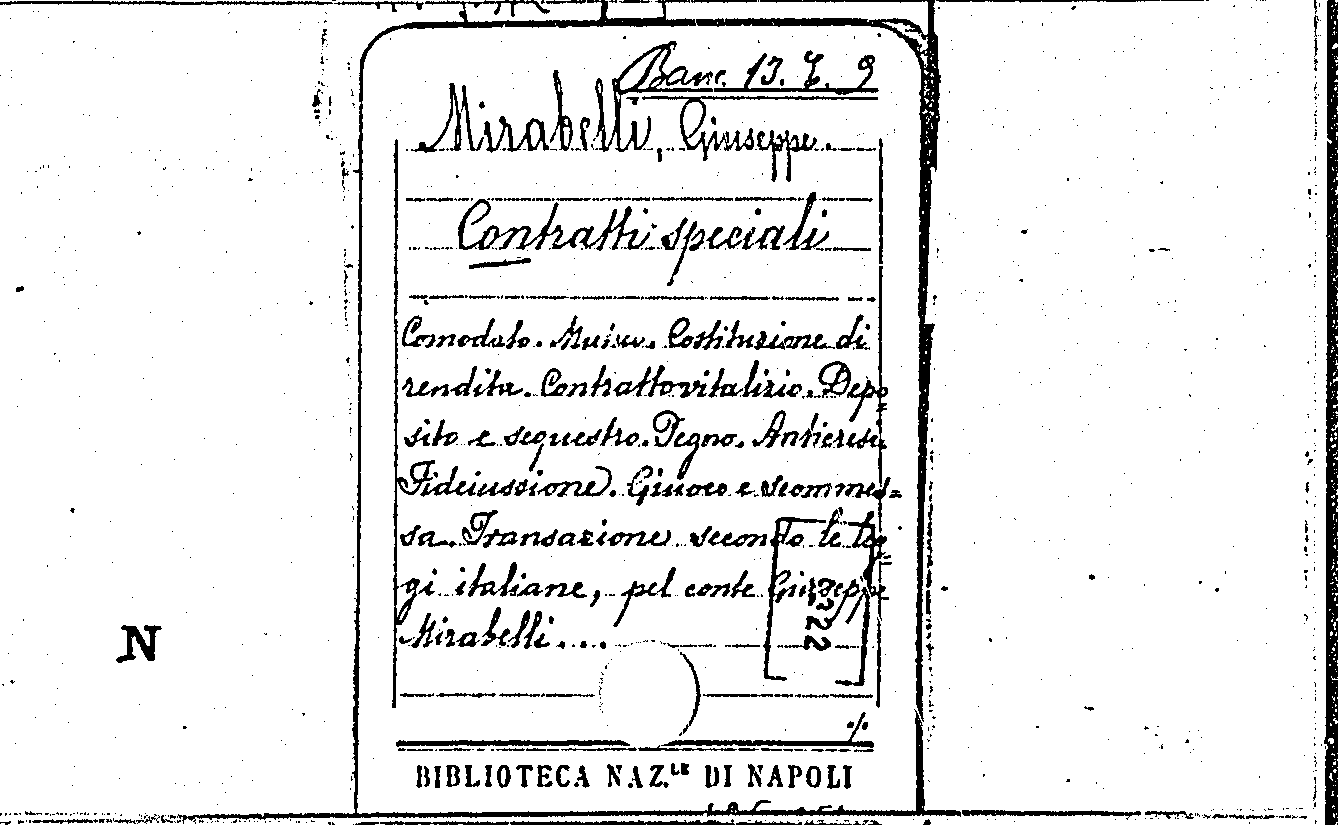 Banc. 13. E. 9
Mirabelli, Giuseppe.
Contratti speciali
Comodato. Mutuo. Costituzione di
rendita. Contratto vitalizio. Depo=
sito e sequestro. Pegno. Anticresi.
Fideiussione. Giuoco e scommes=
sa. Transazione secondo le leg=
gi italiane, pel conte Giuseppe
Mirabelli....
222
N
./.
BIBLIOTECA NAZ.LE DI NAPOLI